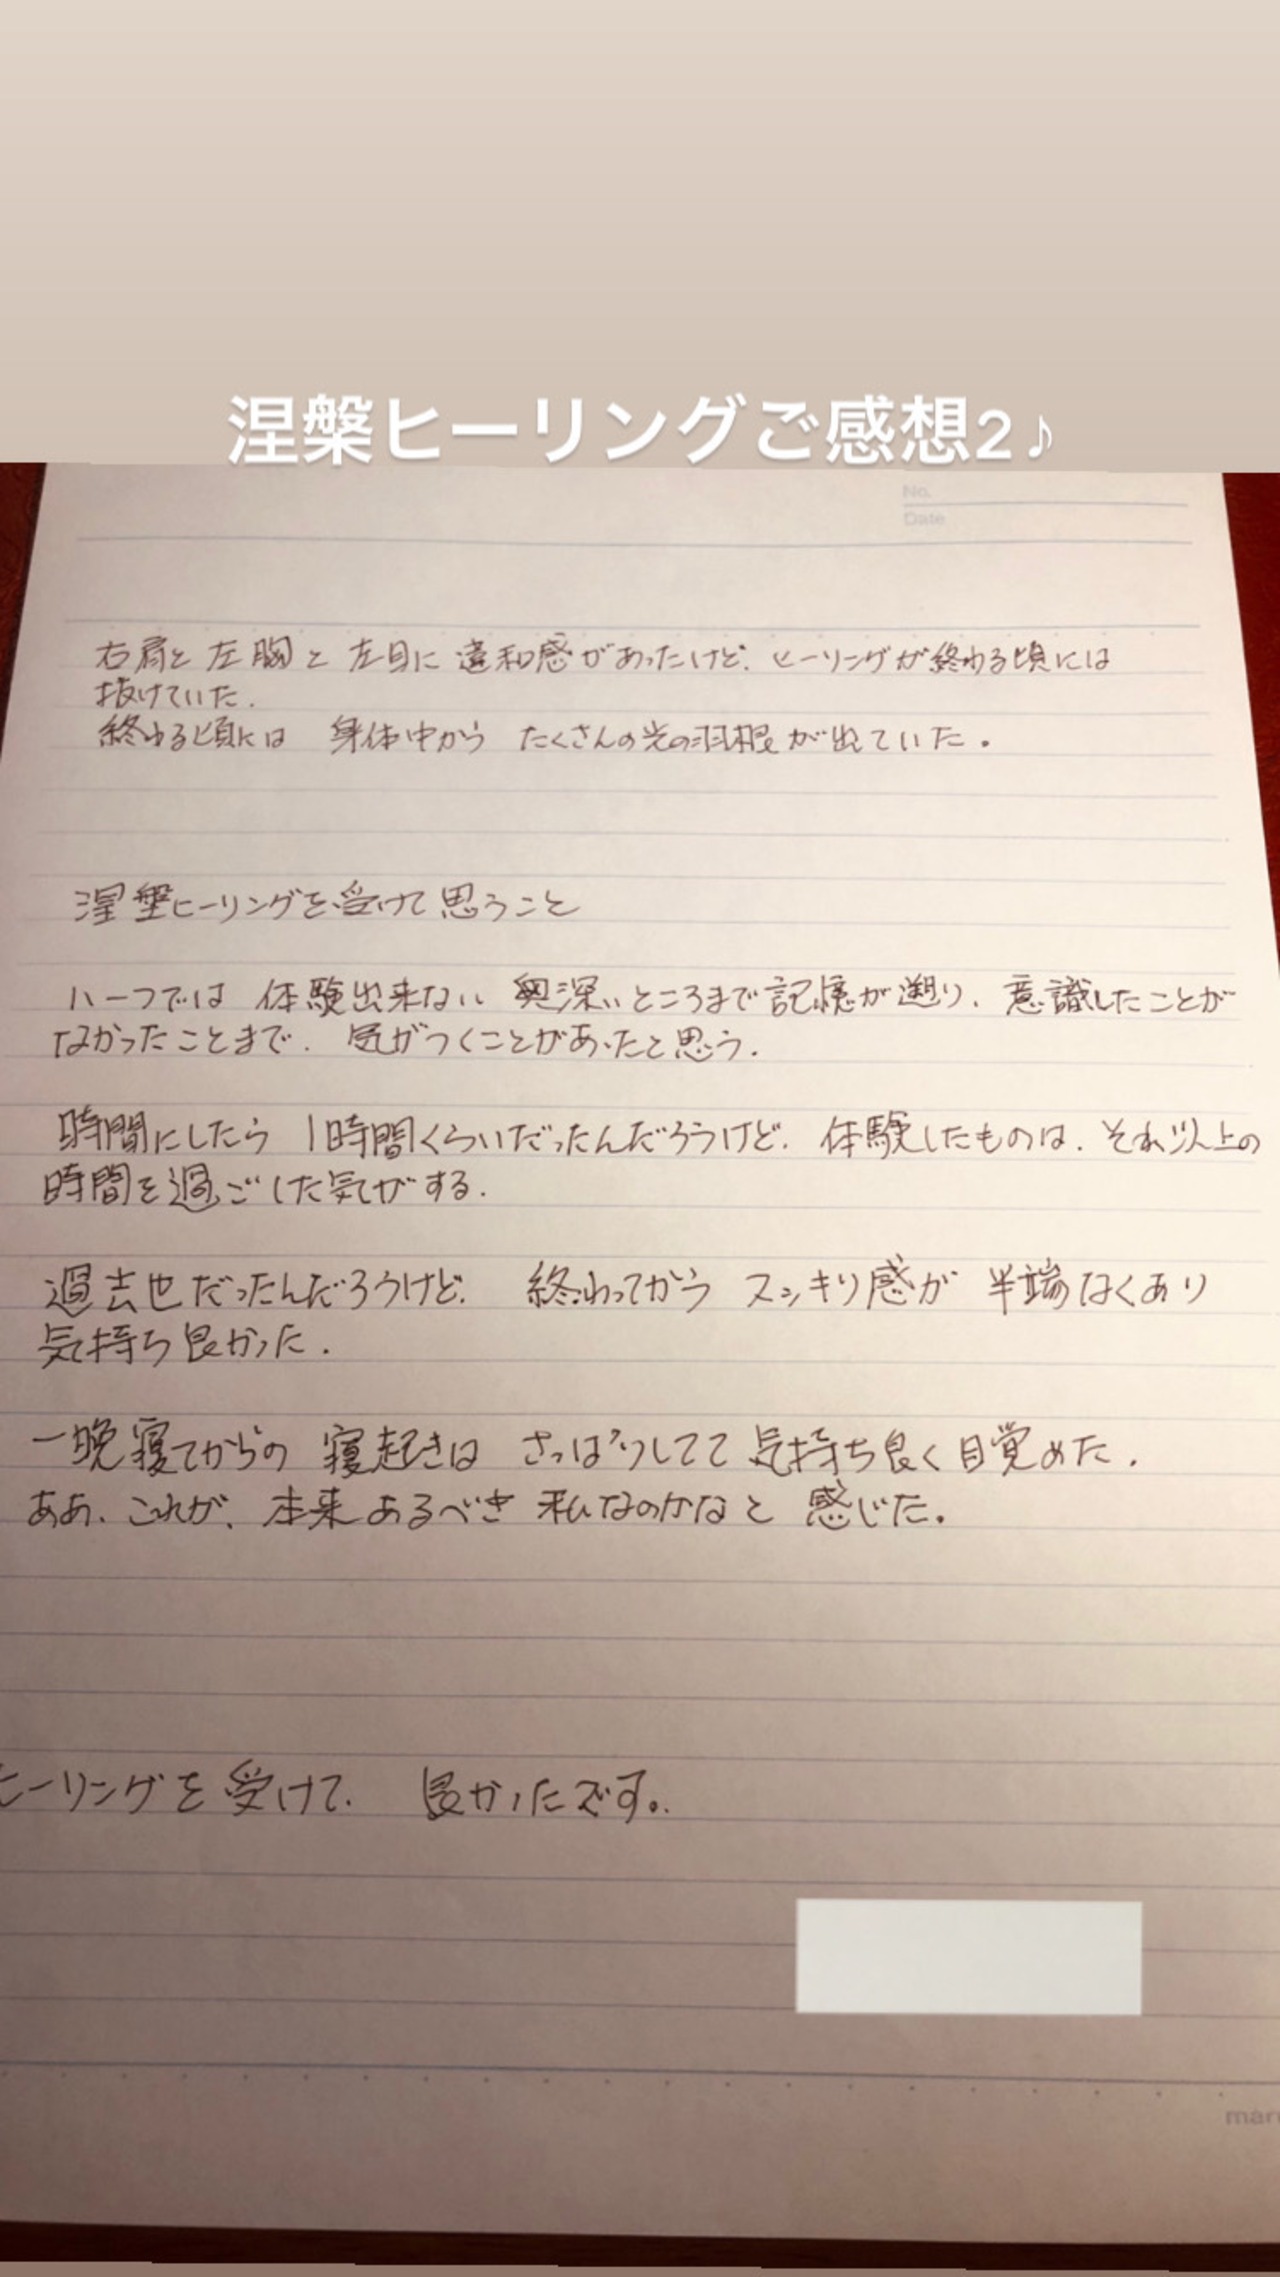 涅槃ヒーリングご感想2♪
No.
Date
右肩と左胸と左目に違和感があったけど、ヒーリングが終わる頃には
抜けていた。
終わる頃には 身体中から たくさんの光の羽根が出ていた。
涅槃ヒーリングを受けて思うこと
ハーフでは 体験出来ない 奥深いところまで記憶が遡り、意識したことが
なかったことまで、気がつくことがあったと思う。
時間にしたら 1時間くらいだったんだろうけど、体験したものは、それ以上の
時間を過ごした気がする。
過去世だったんだろうけど、終わってから スッキリ感が 半端なくあり
気持ち良かった。
一晩寝てからの 寝起きは さっぱりしてて 気持ち良く目覚めた。
ああ、これが、本来あるべき 私なのかなと 感じた。
ヒーリングを受けて、良かったです。